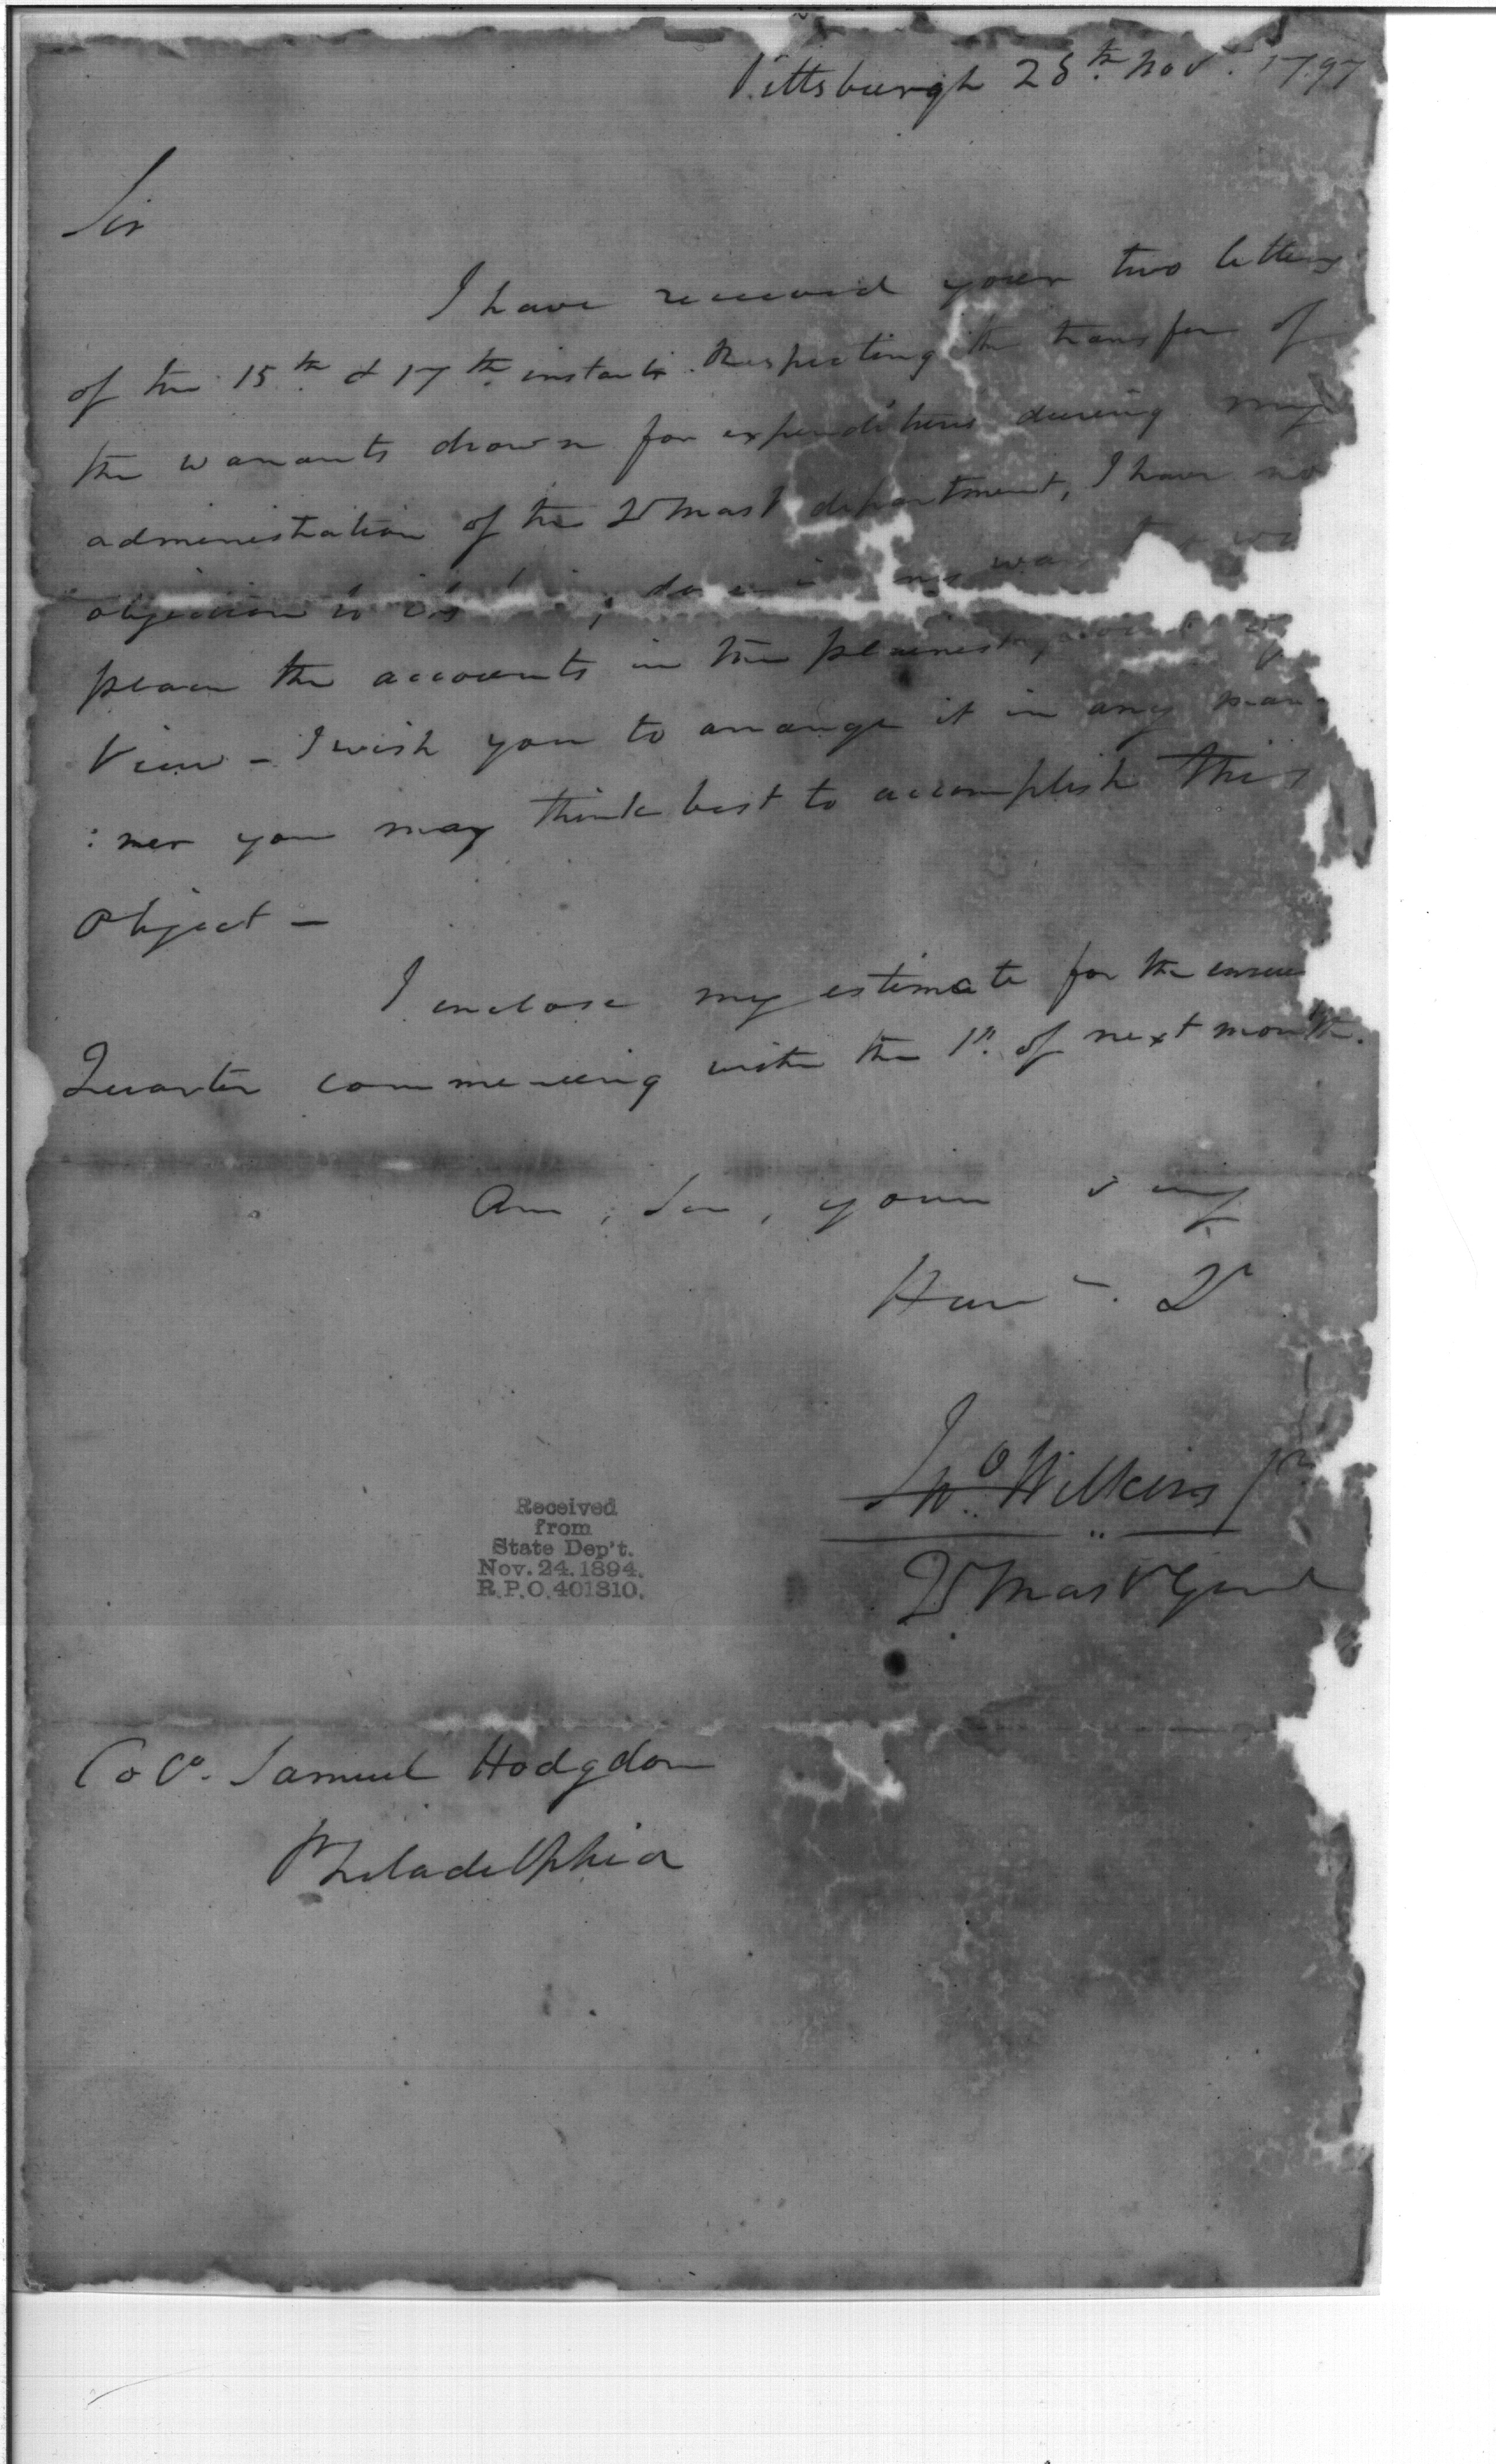 Pittsburgh 28th. Novr. 1797
Sir
I have received your two letters
of the 15th. & 17th. instant. Respecting the transfer of
the warrants drawn for expenditures during my
administration of the Qr Mastr department, I have no
objection to its
place the accounts in the plainest point of
View - I wish you to arrange it in any man
:ner you may think best to accomplish this
Object -
I enclose my estimate for the ensuing
Quarter commencing with the 1st. of next month.
Am, Sir, your
Hum
Jno. Wilkins Jr.
Qr Mastr Genl
Received
from
State Dep't.
Nov. 24. 1894.
R.P.O. 401810.
Colo. Samuel Hodgdon
Philadelphia